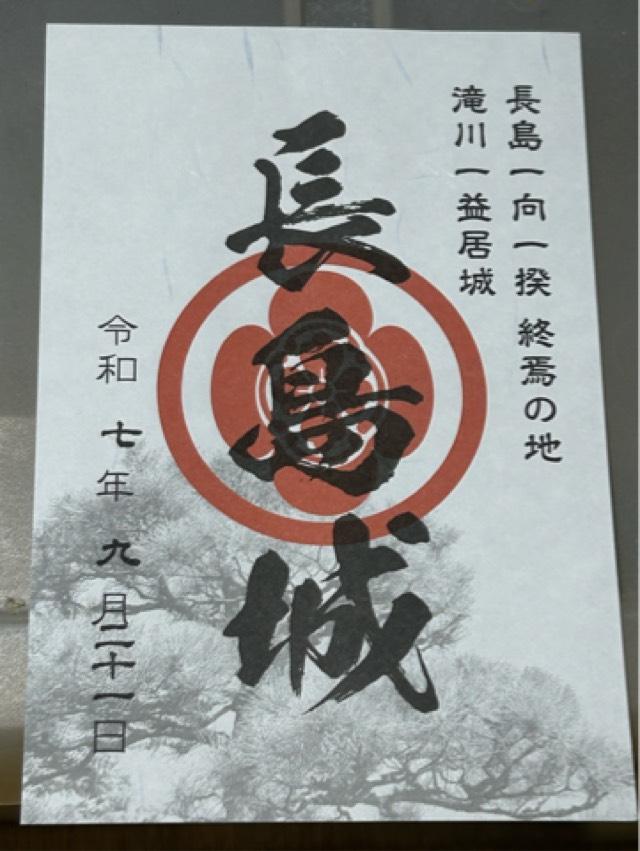 長島一向一揆 終焉の地
滝川一益居城
長島城
令和 七年 九月二十一日